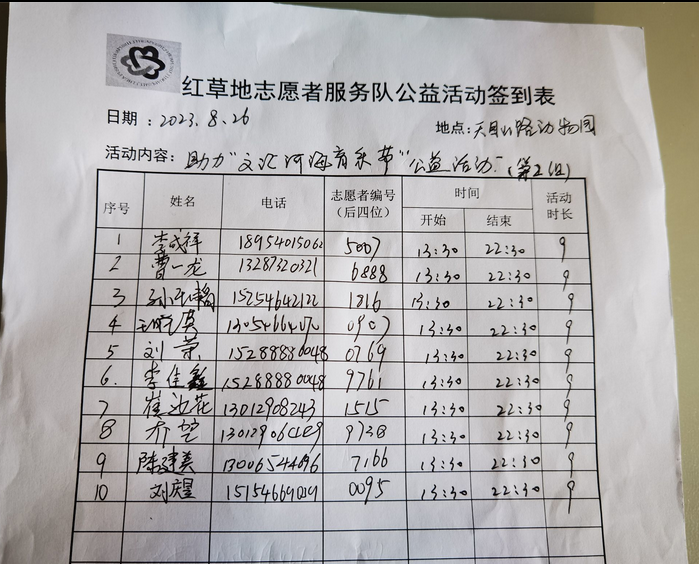 红草地志愿者服务队公益活动签到表
日期：2023.8.26 地点：天目山路动物园
活动内容：助力"文汇河海音乐节"公益活动（第2组）
序号 姓名 电话 志愿者编号（后四位） 时间 开始 结束 活动时长
1 李成祥 18954015062 5007 13:30 22:30 9
2 曹一龙 13287320321 6888 13:30 22:30 9
3 15254642122 1816 13:30 22:30 9
4 0907 13:30 22:30 9
5 刘荣 15288880048 0769 13:30 22:30 9
6. 李佳鑫 15288880048 9761 13:30 22:30 9
7 崔池花 13012908243 1515 13:30 22:30 9
8 9738 13:30 22:30 9
9 陈建美 13006544696 7166 13:30 22:30 9
10 刘煜 0095 13:30 22:30 9